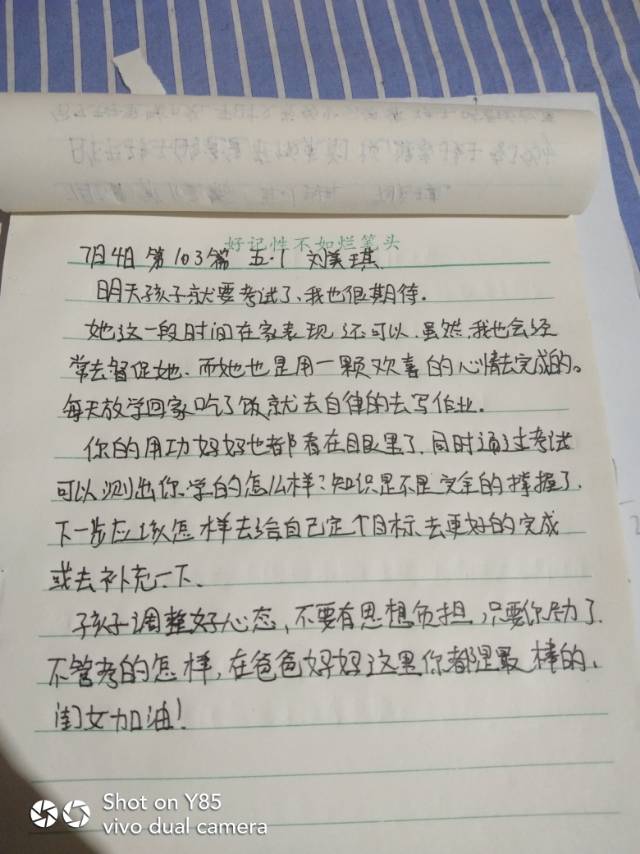 好记性不如烂笔头
7月4日 第103篇 五·1 刘美琪
明天孩子就要考试了、我也很期待.
她这一段时间在家表现还可以.虽然,我也会经
常去督促她.而她也是用一颗欢喜的心情去完成的。
每天放学回家吃了饭,就去自律的去写作业.
你的用功妈妈也都看在眼里了,同时通过考试
可以测出你学的怎么样?知识是不是完全的掌握了.
下一步应该怎样去给自己定个目标、去更好的完成
或去补充一下、
孩子调整好心态,不要有思想负担,只要你尽力了.
不管考的怎样,在爸爸妈妈这里你都是最棒的、
闺女加油!
Shot on Y85
vivo dual camera